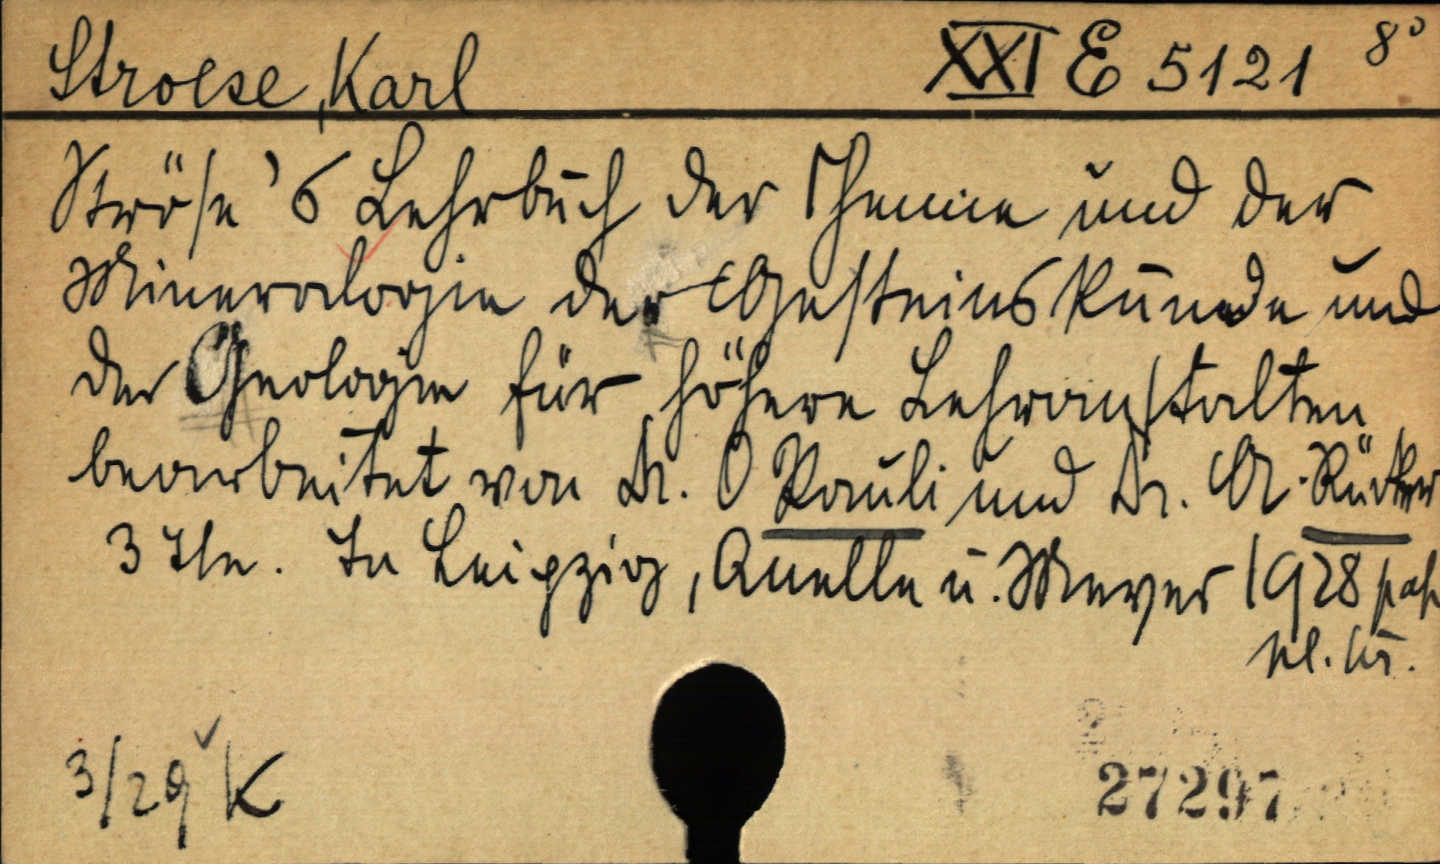 Stroese, Karl XXI E 5121 8°
Ströse's Lehrbuch der Chemie und der
Mineralogie der Gesteinskunde und
der Geologie für höhere Lehranstalten
bearbeitet von Dr. O Pauli und Dr. A. Rücker
3 Tle. In Leipzig, Quelle u. Meyer 1928
3/29 K
27297